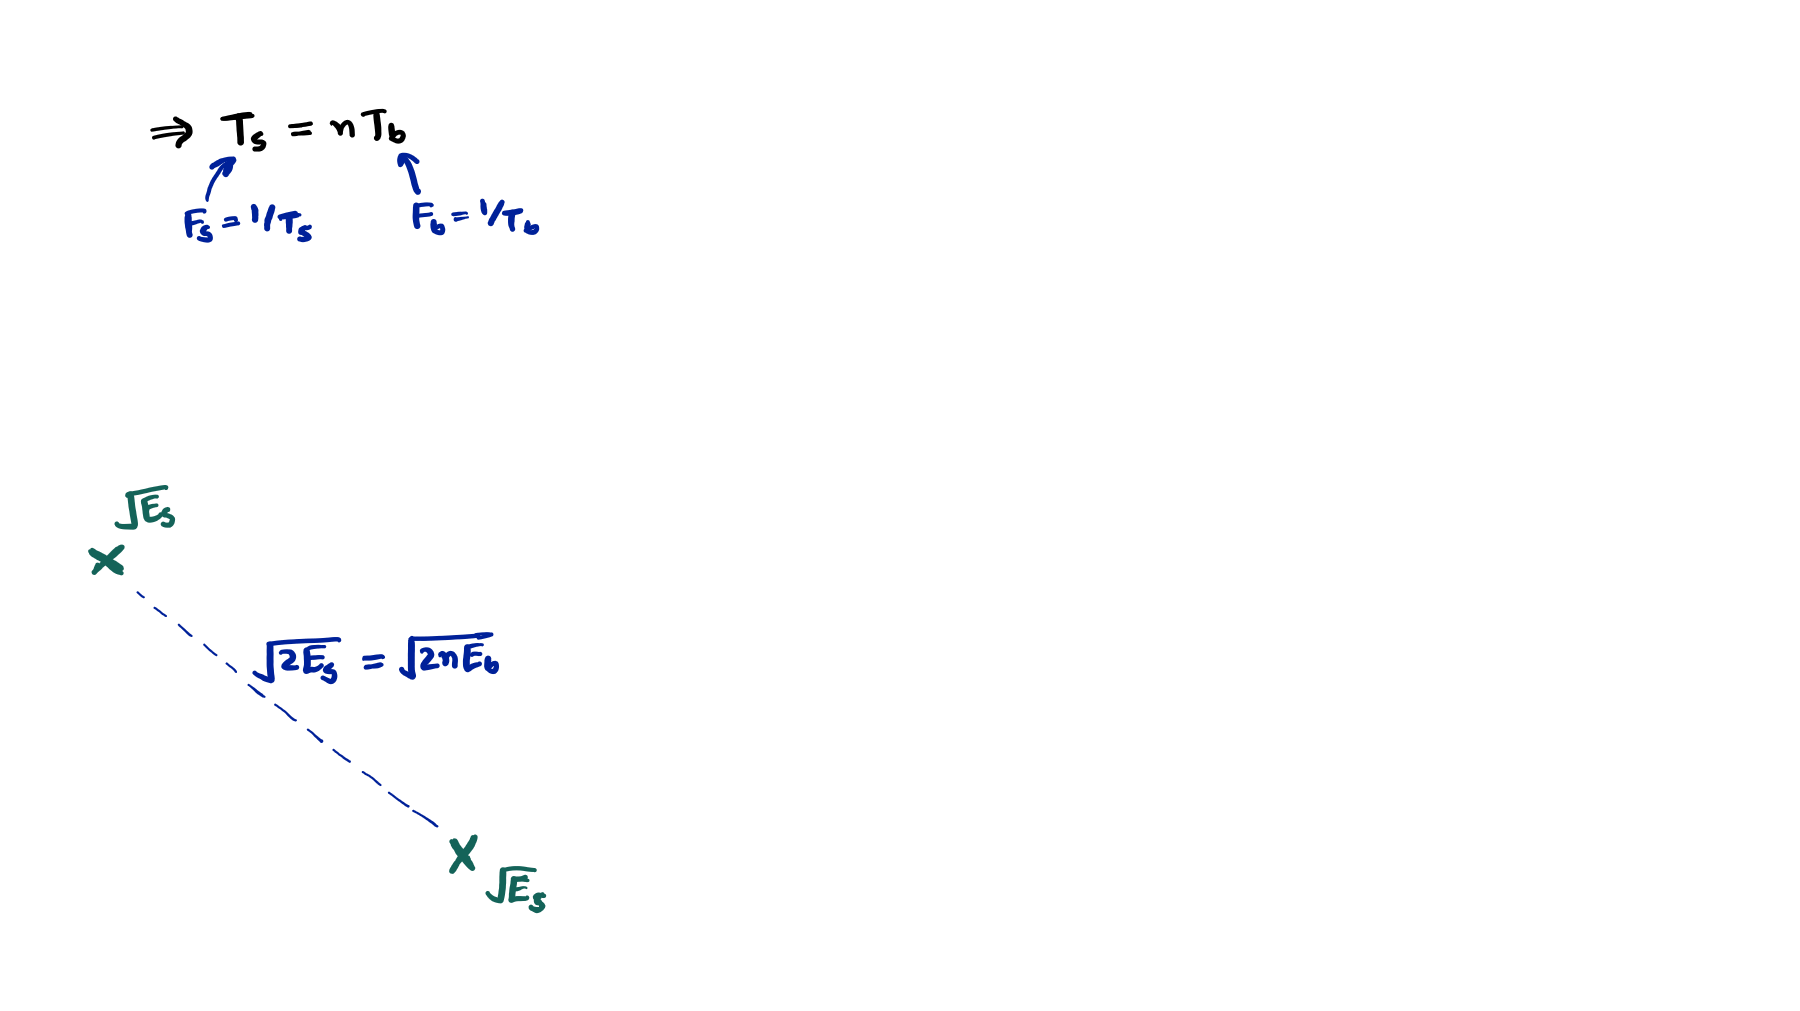 ⇒ Ts = nTb
Fs = 1/Ts Fb = 1/Tb
√Es
√2Es = √2nEb
√Es